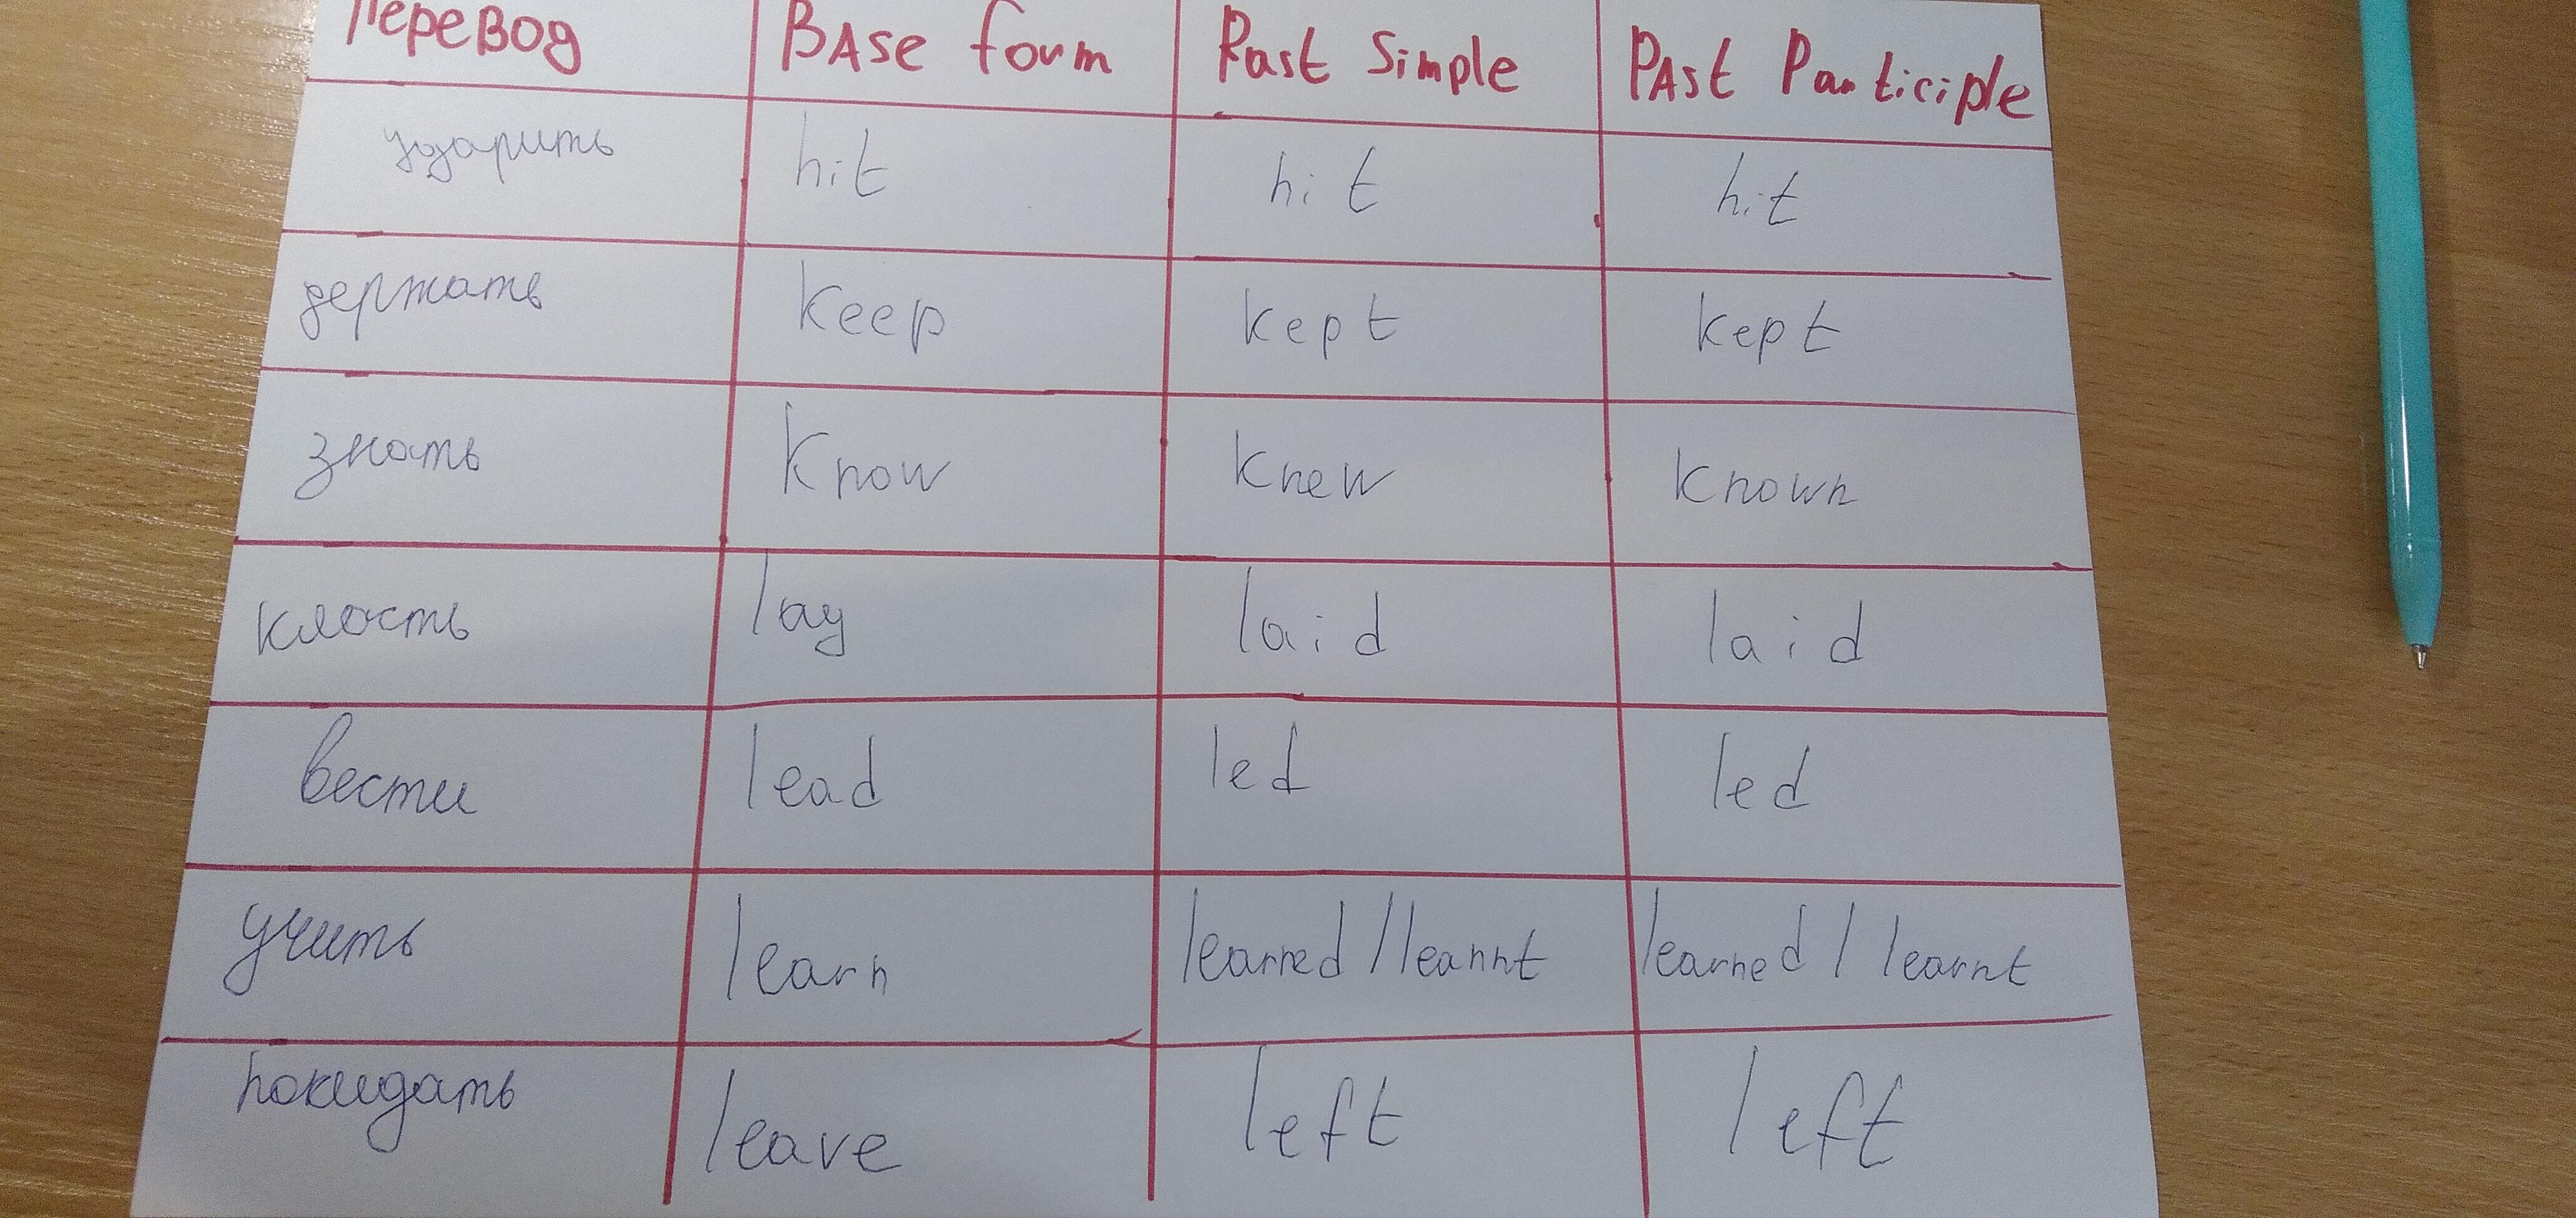 Перевод BAse form Past Simple PAst Participle
ударить hit hit hit
держать keep kept kept
знать know knew known
класть lay laid laid
вести lead led led
учить learn learned / learnt learned / learnt
покидать leave left left